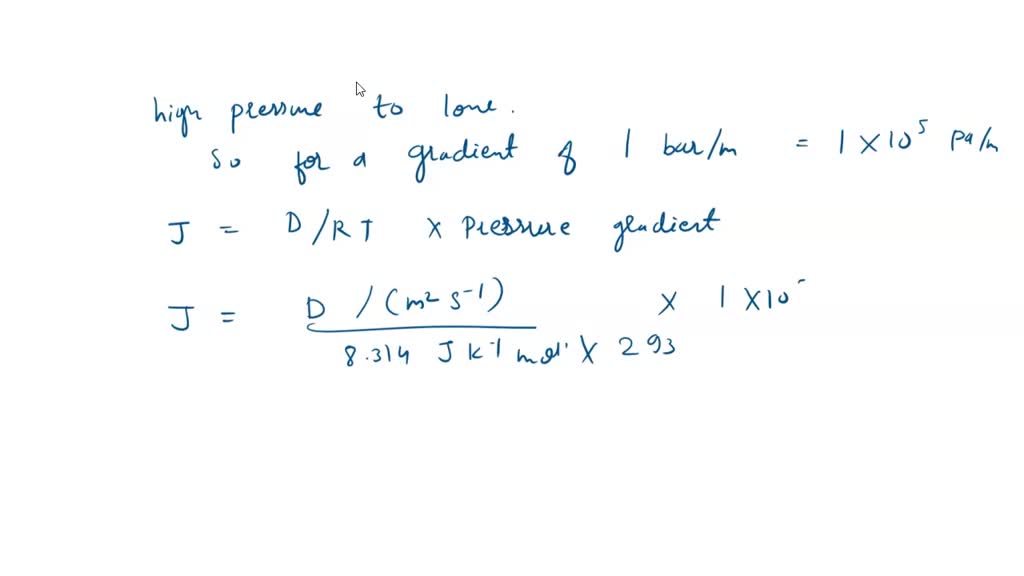 high pressure to lone.
So for a gradient of 1 bar/m = 1 × 10⁵ pa/m
J = D/RT × Pressure gradient
J = D / (m² s⁻¹) × 1 × 10
8.314 J K⁻¹ mol⁻¹ × 293